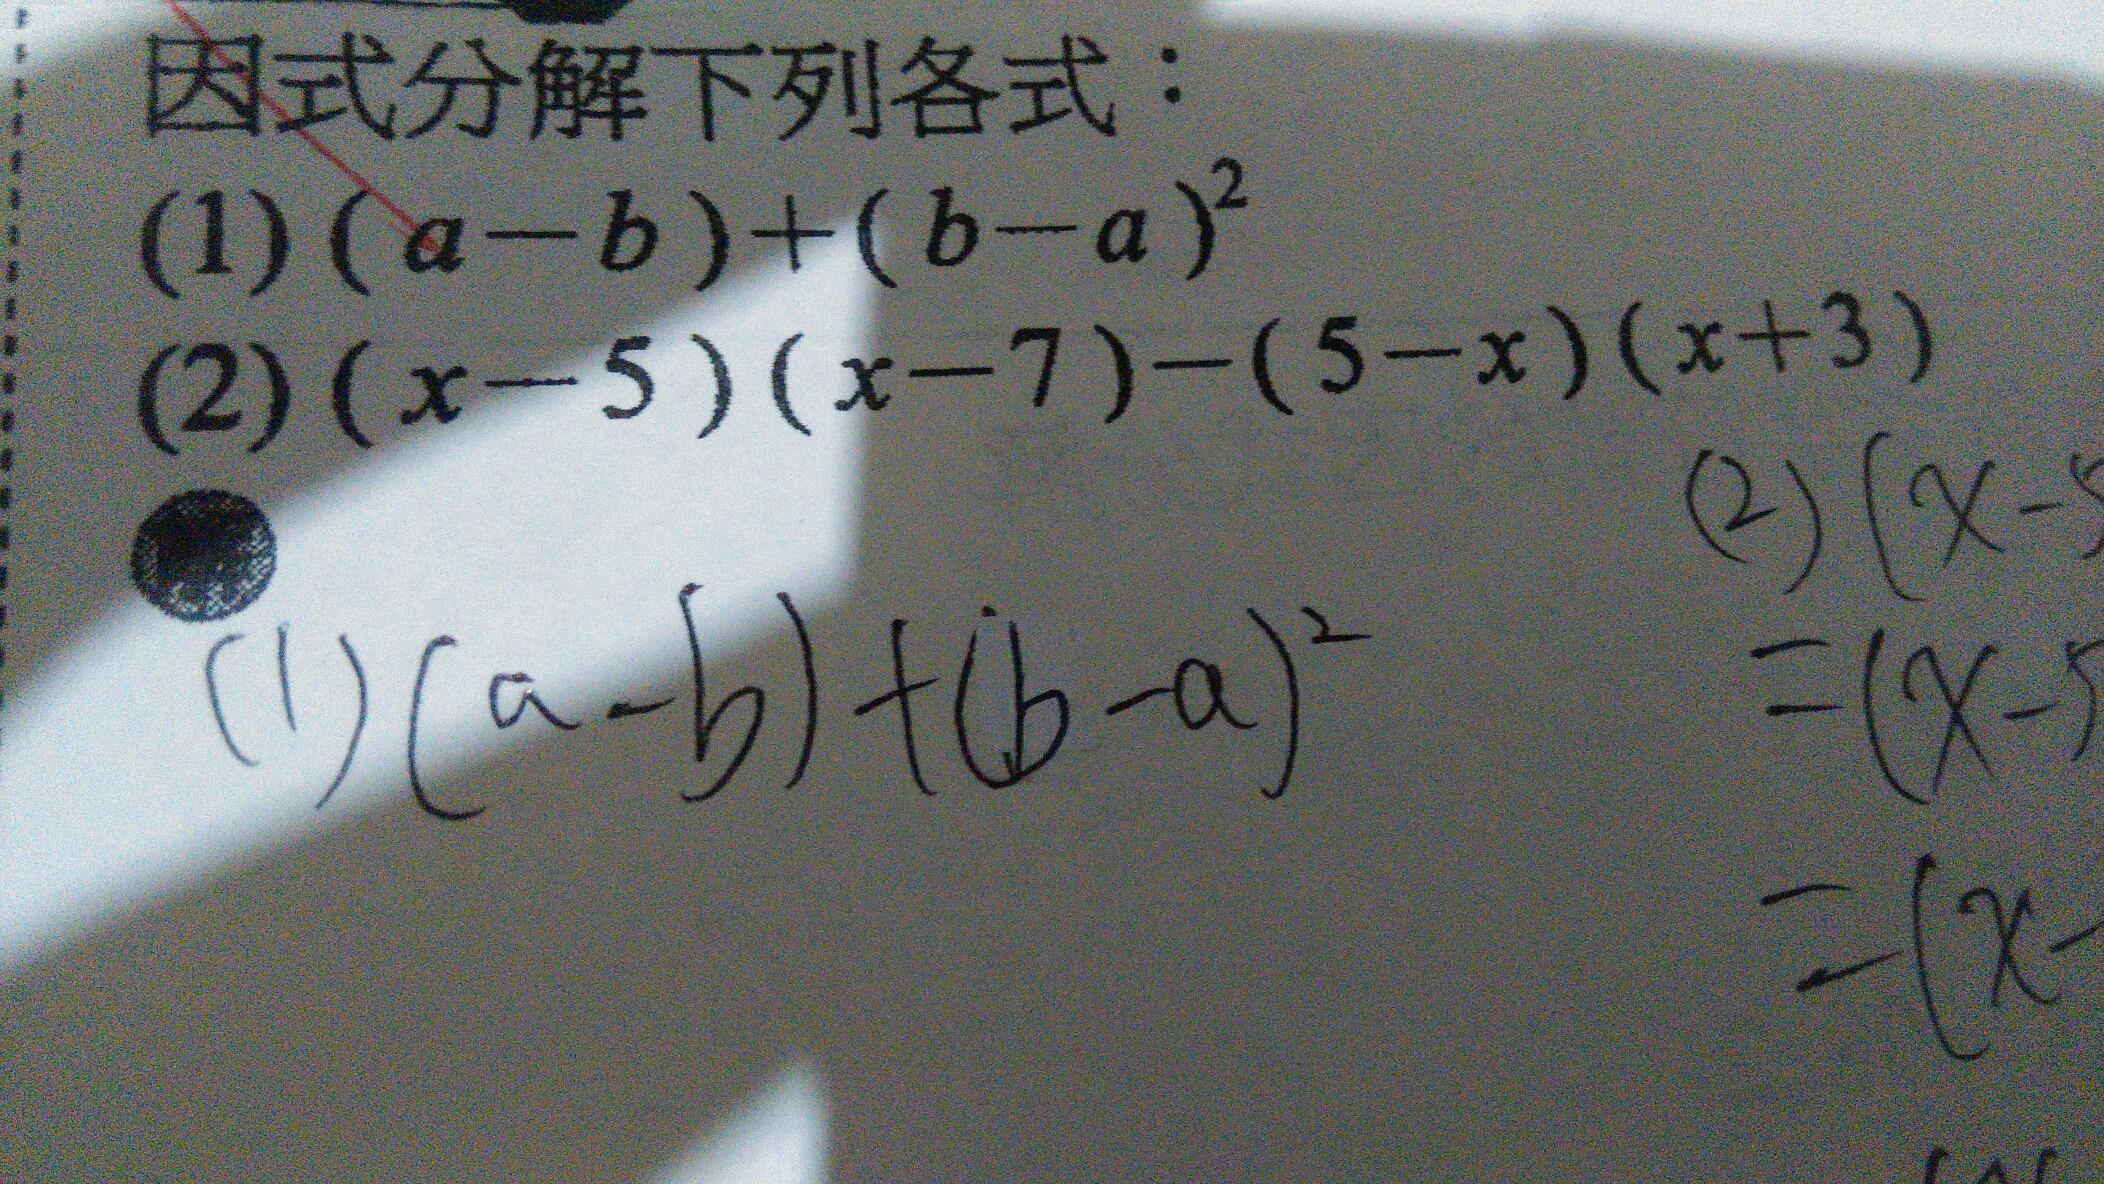 因式分解下列各式：
(1)(a－b)＋(b－a)²
(2)(x－5)(x－7)－(5－x)(x＋3)
(1)(a-b)+(b-a)²
(2)(x-5
=(x-5)
=(x-